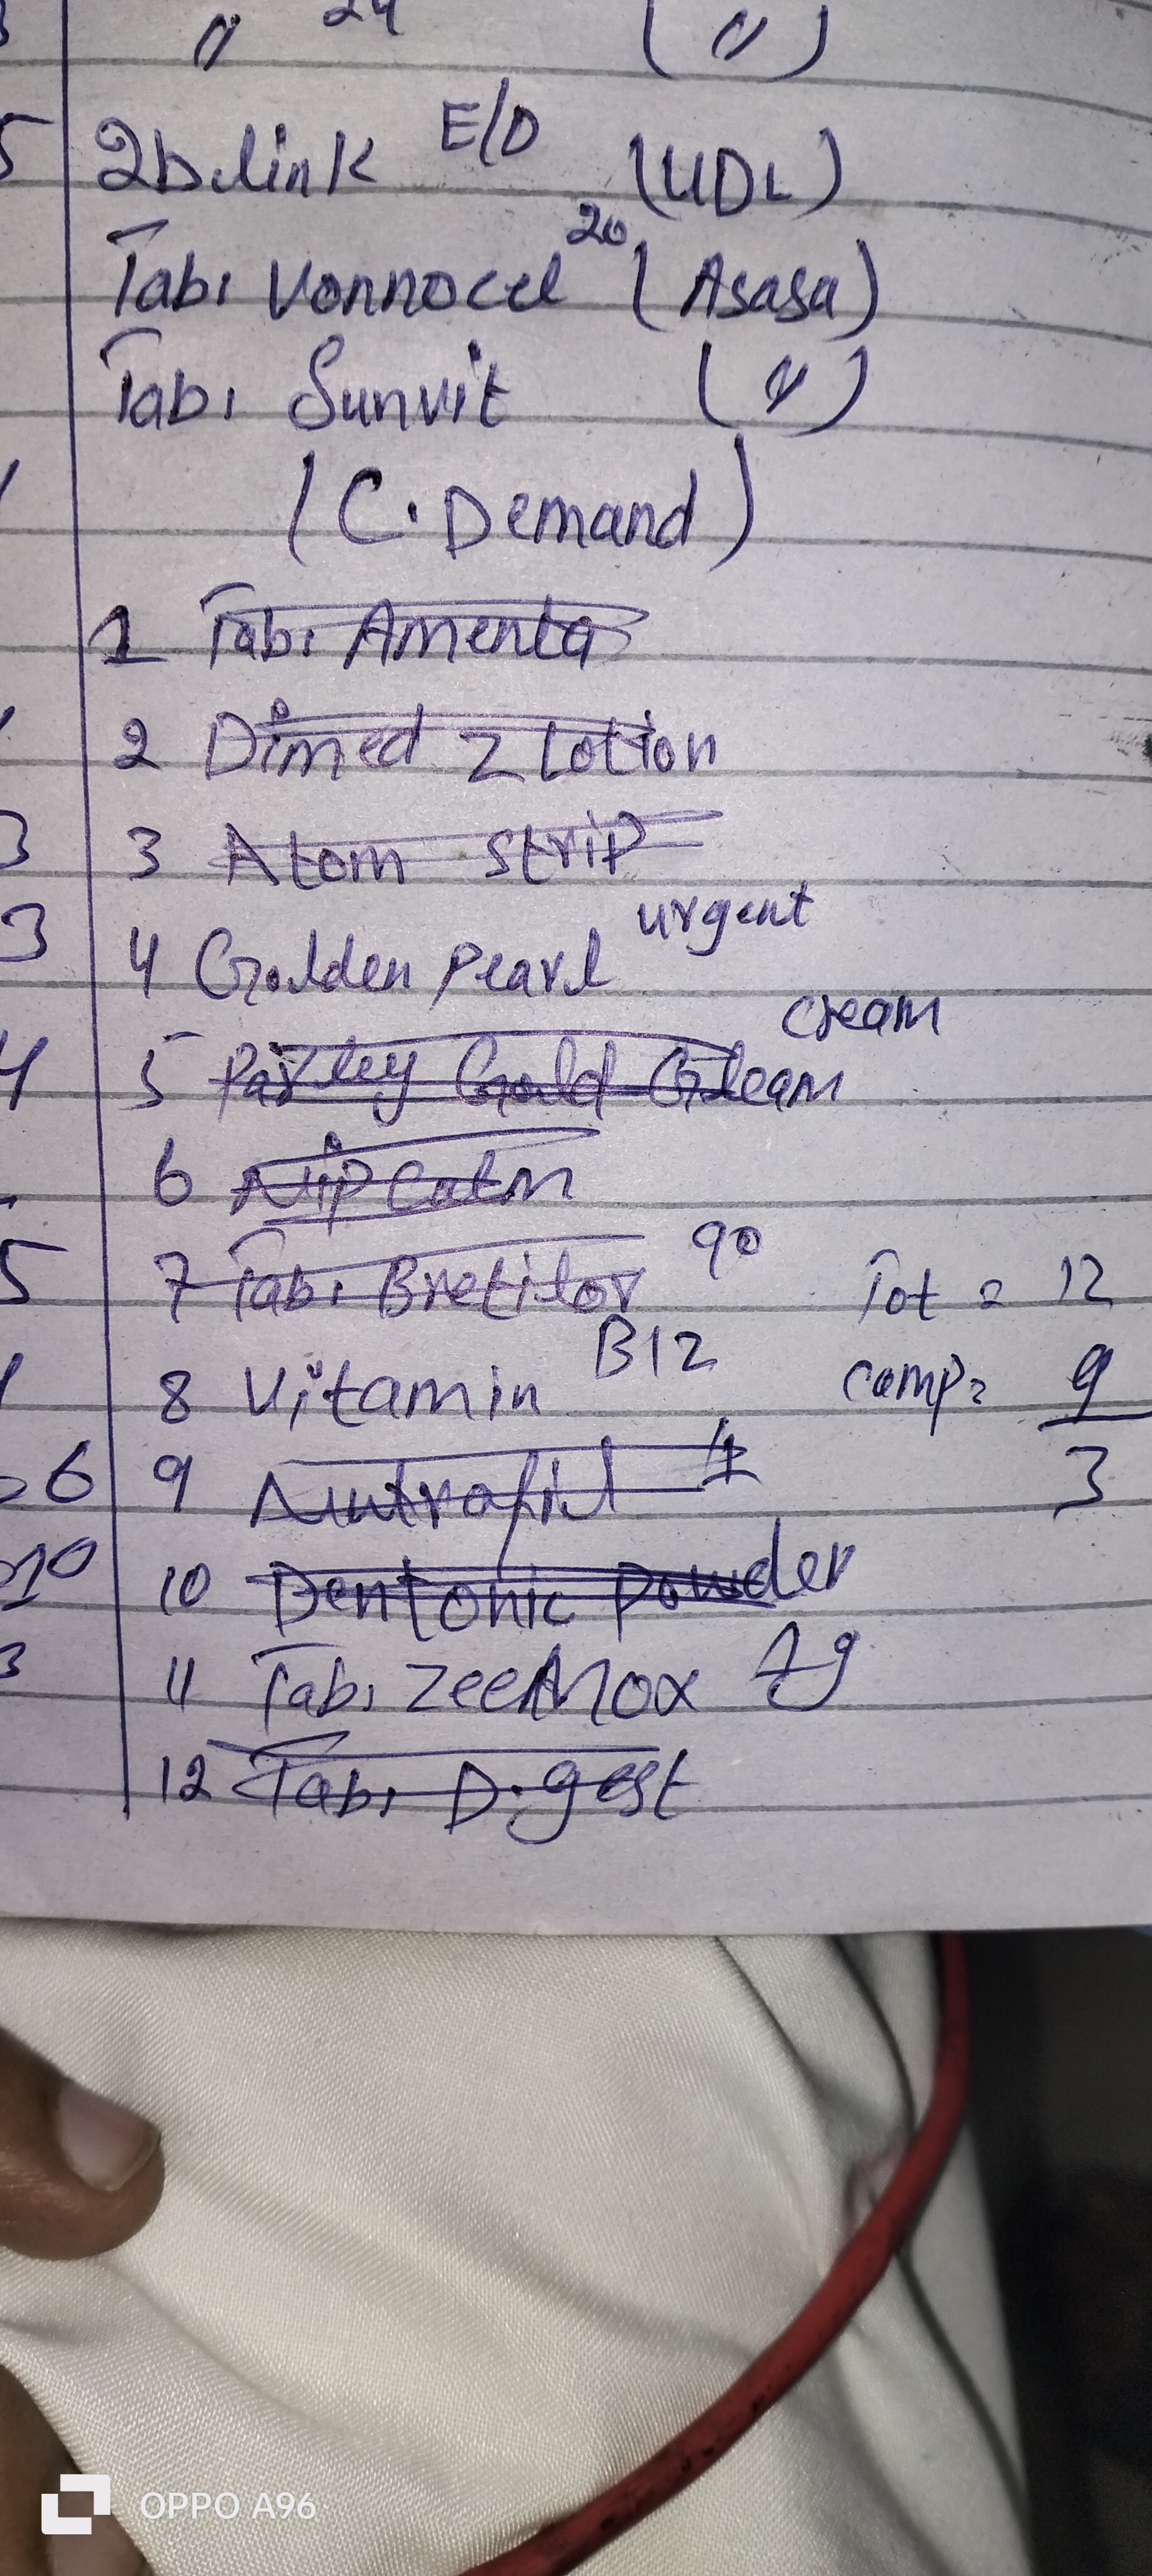 〃 24 (〃)
5 2blink E/D (UDL)
Tab. Vonnocel 20 (Asasa)
Tab. Sunvit (〃)
(C. Demand)
1 Tab. Amenta
2 Dimed Z lotion
3 3 Atom strip
3 4 Golden Pearl urgent
4 5 Parley Gold Gleam cream
6
5 7 Tab. Bretilor 90 Tot = 12
8 Vitamin B12 Comp = 9
6 9 Nutrafil 1 3
10 10 Dentonic Powder
3 11 Tab. ZeeMox 1g
12 Tab. D.gest
OPPO A96